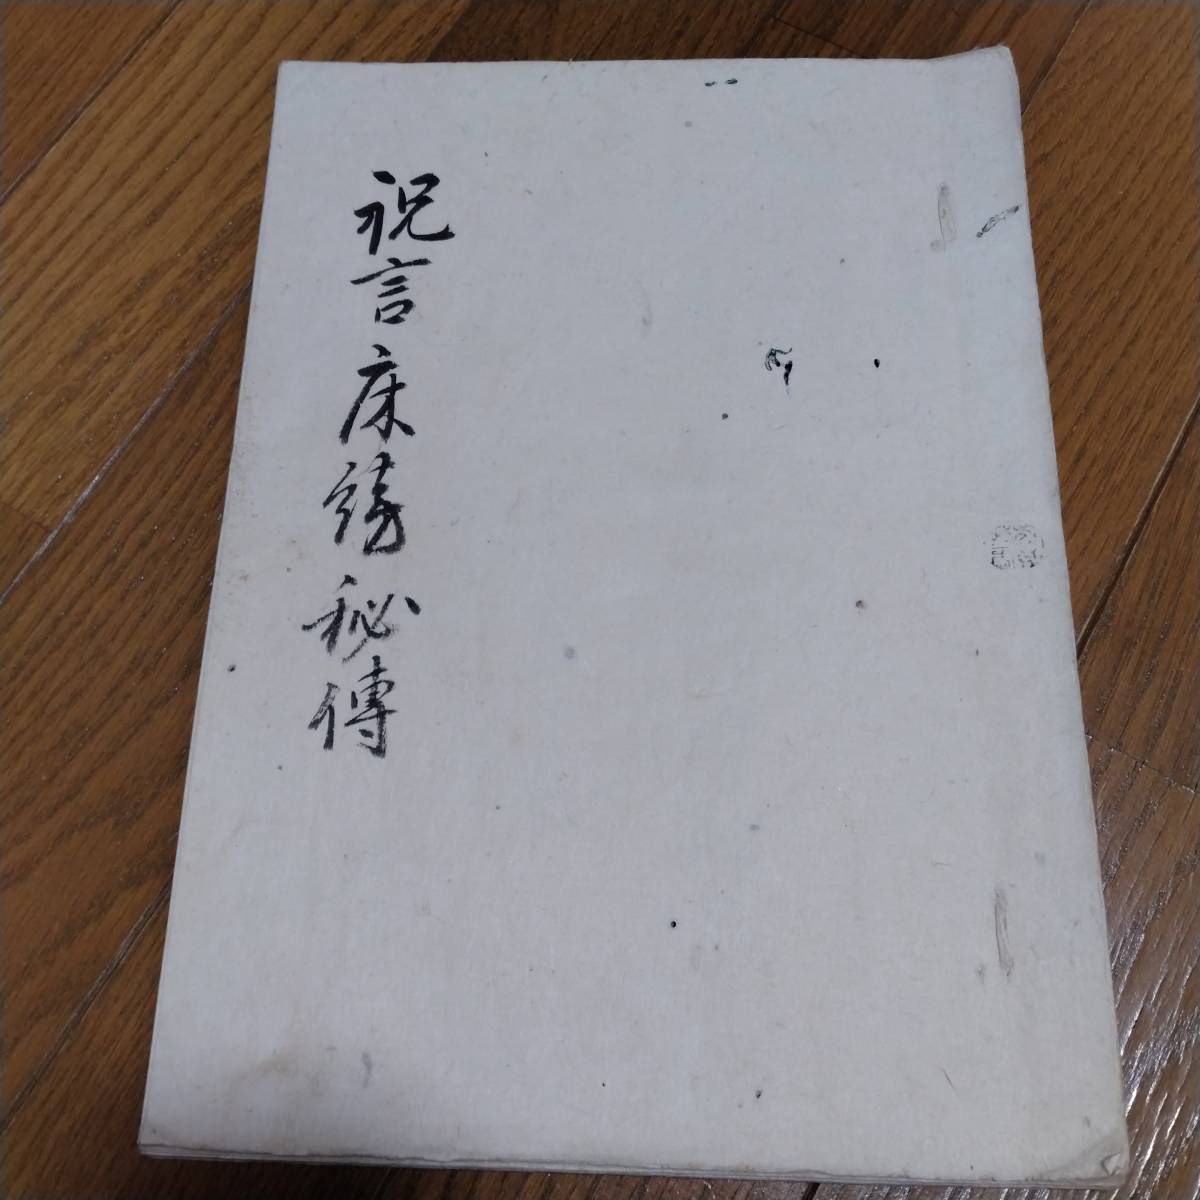 祝言床飾秘傳